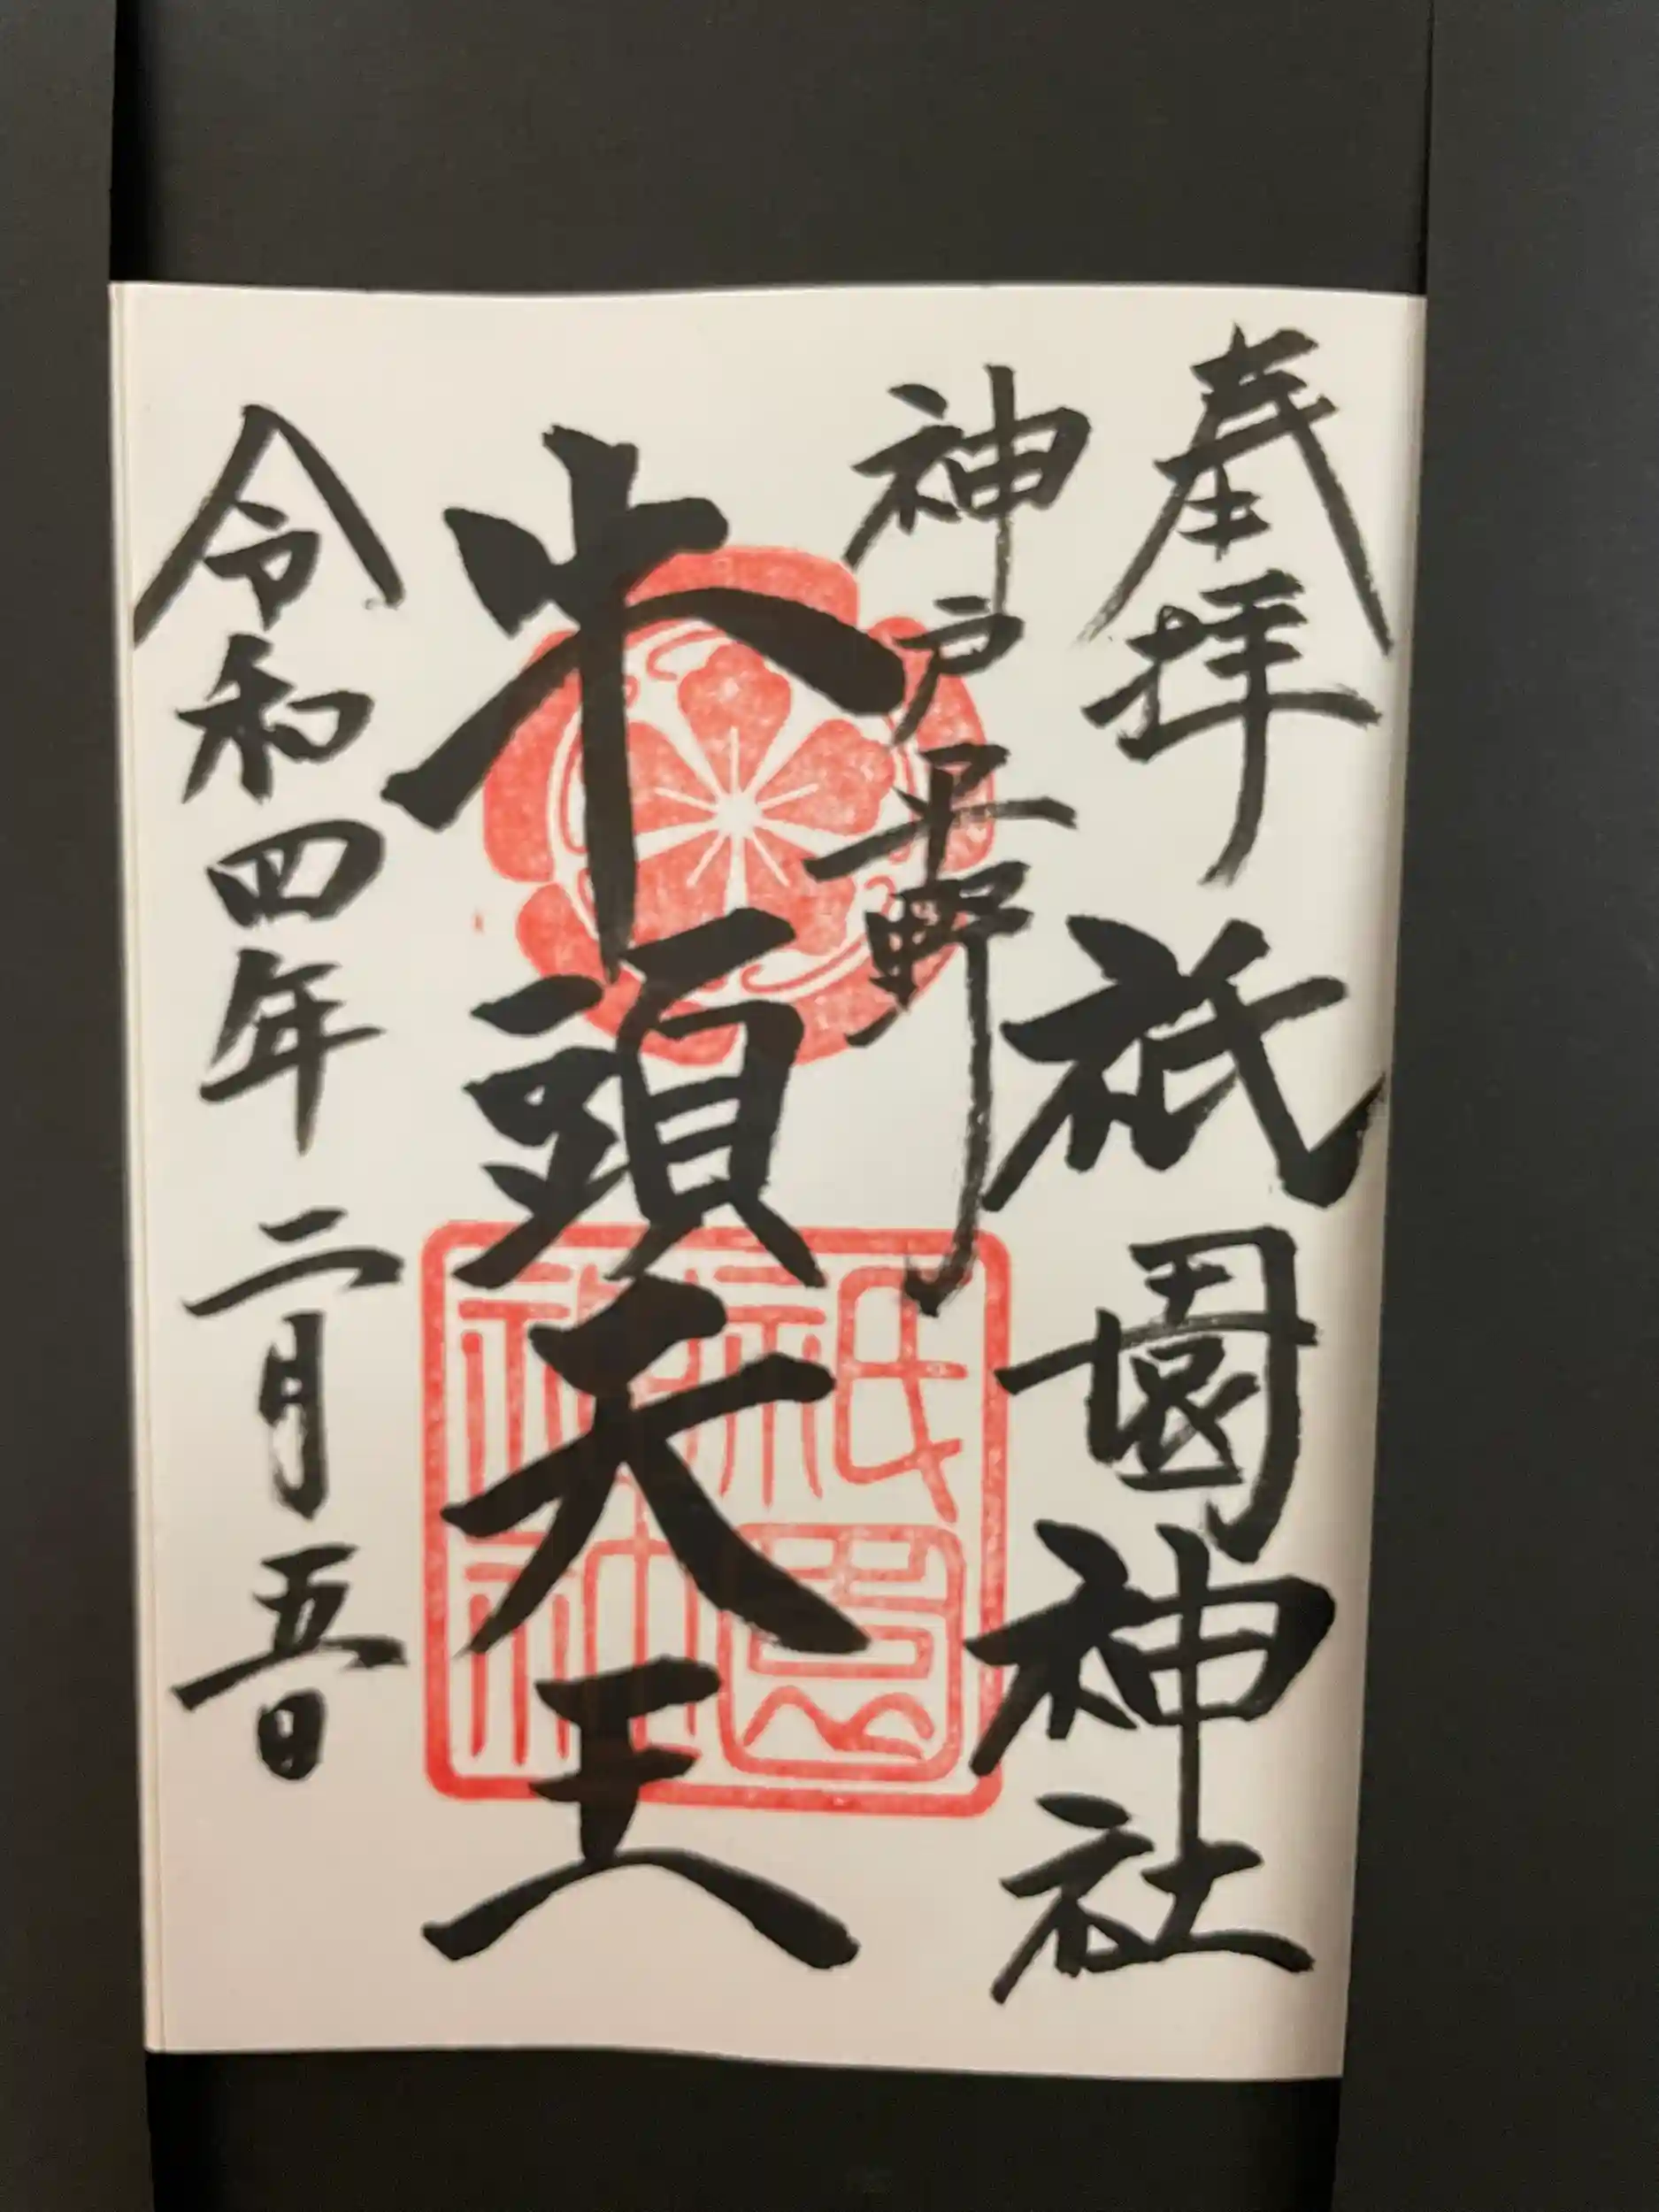 奉拝
祇園神社
神戸平野
牛頭天王
令和四年二月五日
祇園
神社